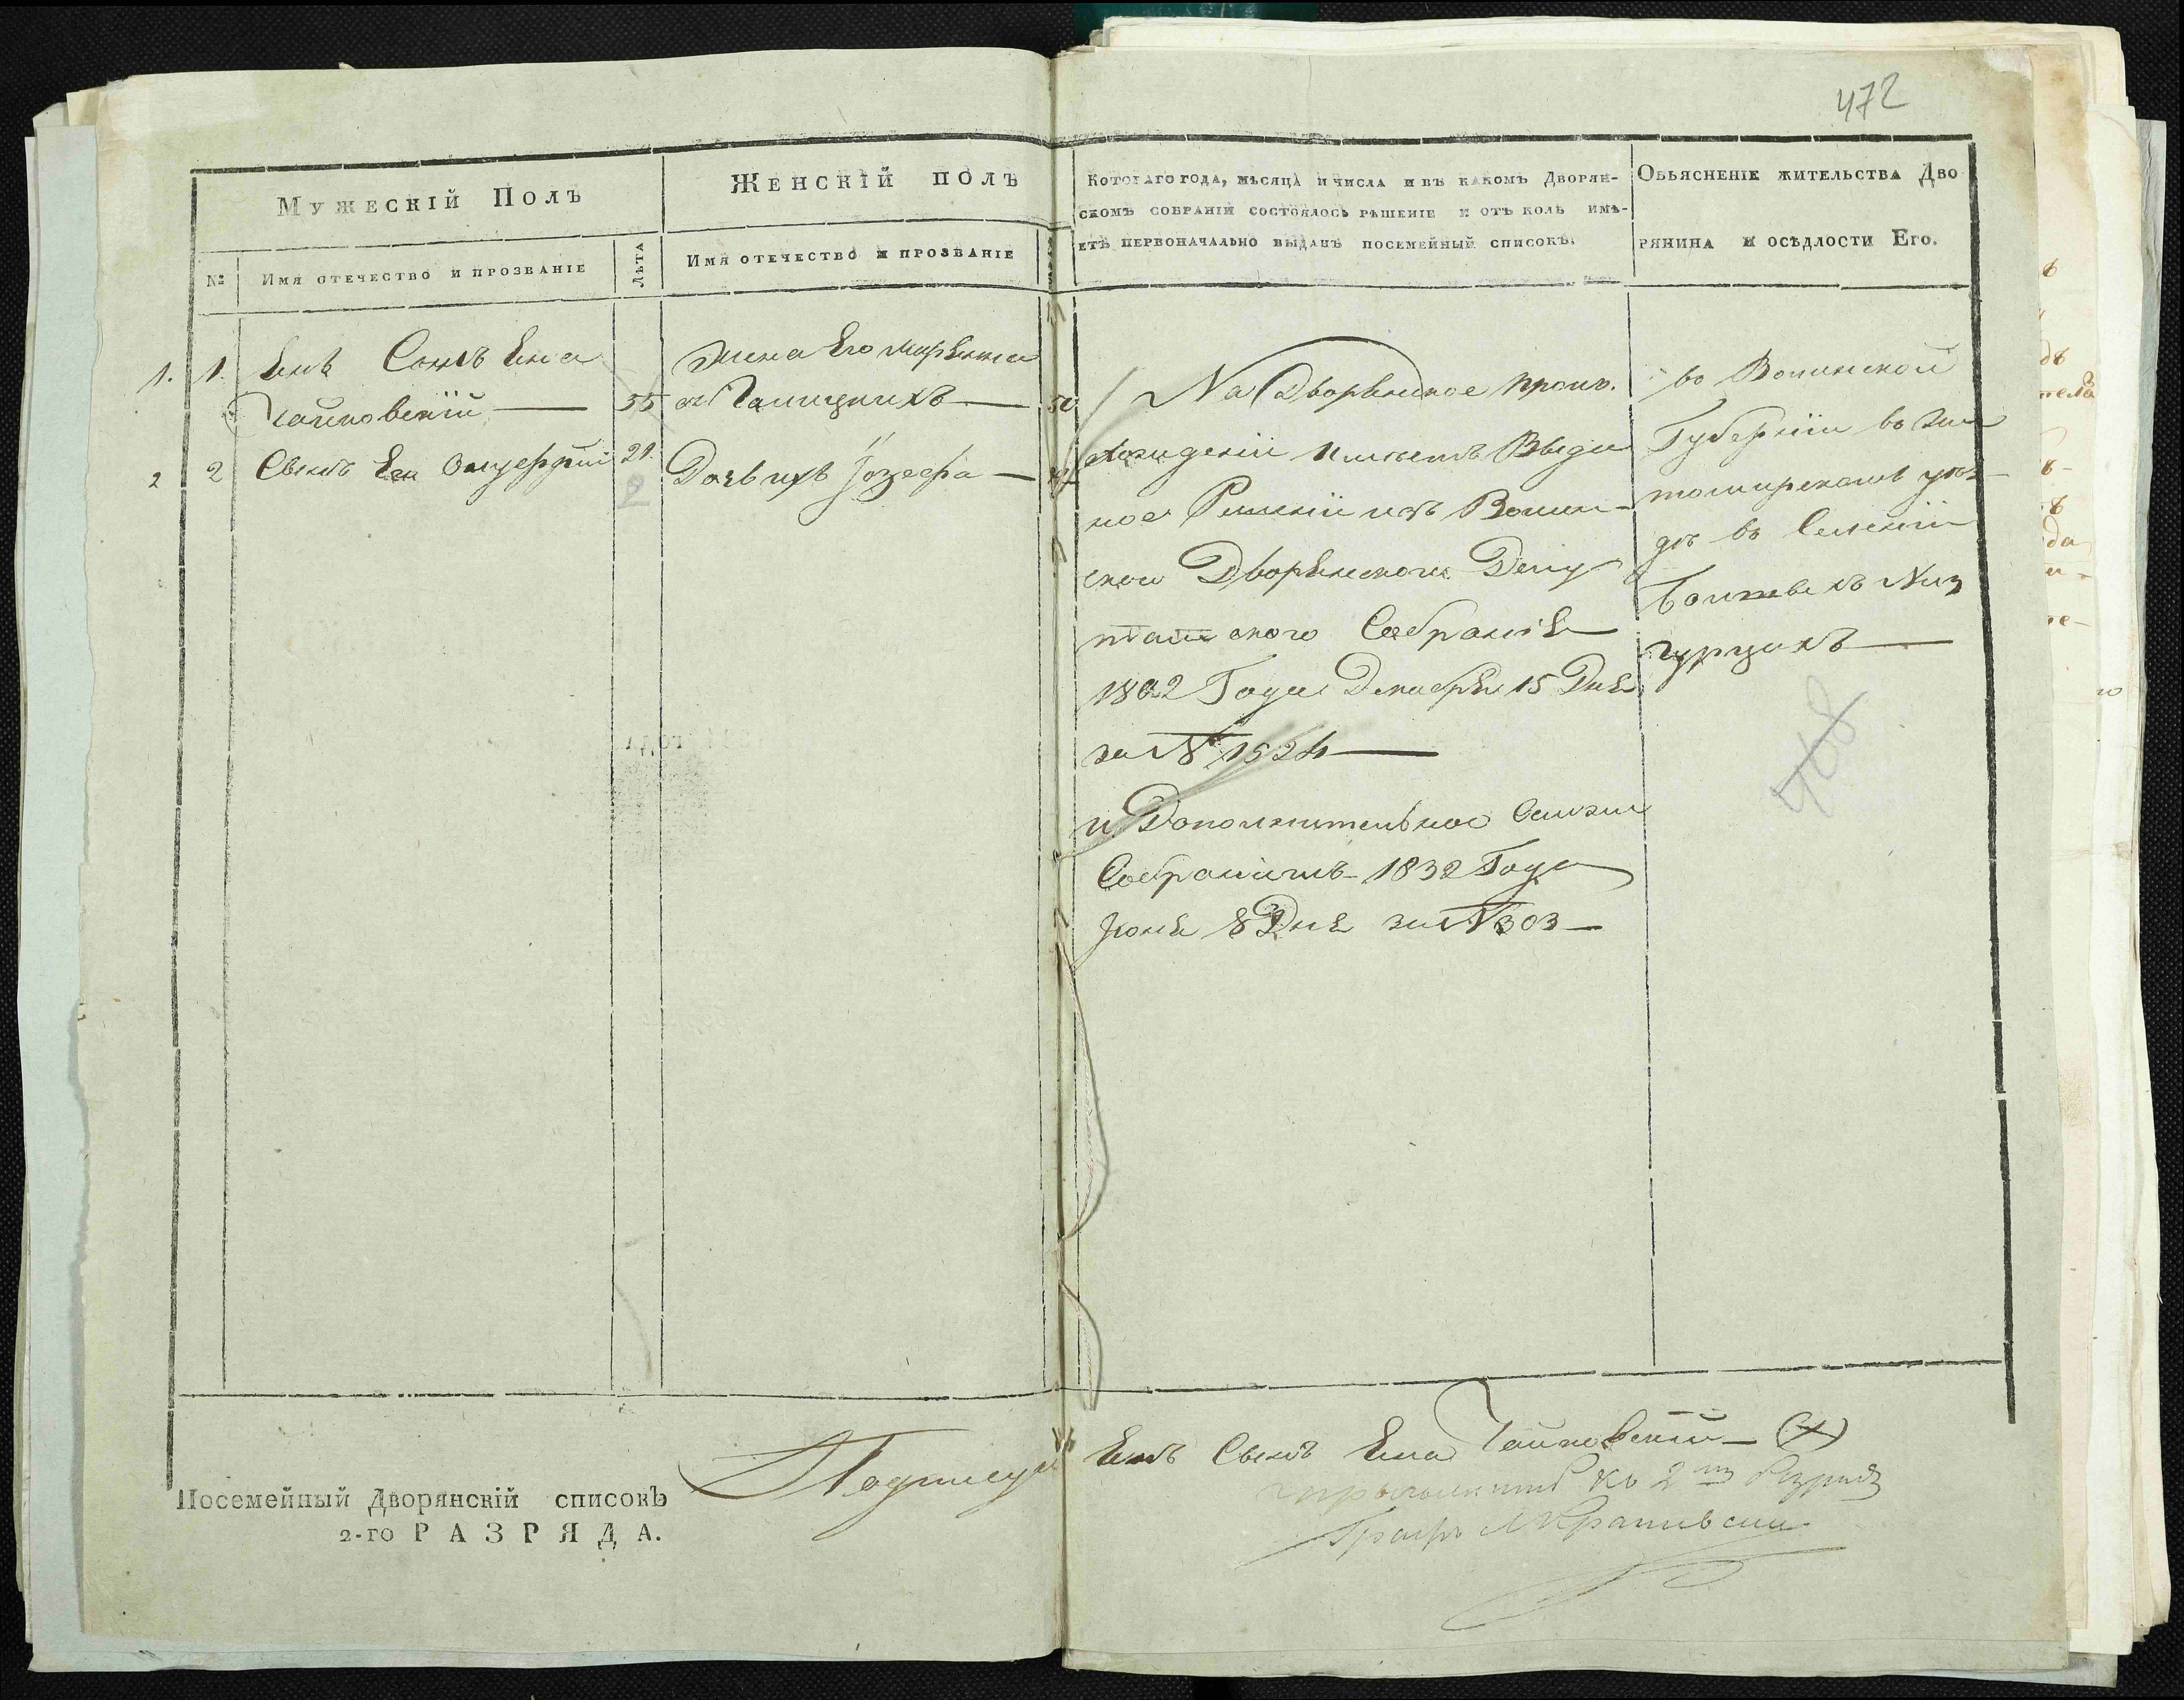 472
Мужескій Полъ
Женскій полъ
Котораго года, мѣсяца и числа и въ какомъ Дворян-
скомъ собраніи состоялось рѣшеніе и отъ коль имѣ-
етъ первоначально выданъ посемейный списокъ.
Объясненіе жительства Дво
рянина и осѣдлости Его.
№
Имя отечество и прозваніе
Лѣта
Имя отечество и прозваніе
1. 1. Янъ Сынъ Яна
Чайковскій — 55
2 2 Сынъ Ян 21
Жена Его Маріяна
изъ — 50
Дочь ихъ Іозефа —
На Дворянское проис.
хождении имѣетъ Выдан
ное Решении изъ Волин-
ской Дворянского Депу
таш ского Собрания
1802 Года Декабря 15 Дня
за № 1524 —
и Дополнительное
Собраниимъ 1832 Года
Июня 8 Дня за № 303 —
во Волинской
Губернии во Жи
томирскомъ уѣз-
дѣ въ Селении
468
Посемейный Дворянскій списокъ
2-го РАЗРЯДА.
Янъ Сынъ Яна Чайковский — (X)
къ 2му Разряду
Графъ